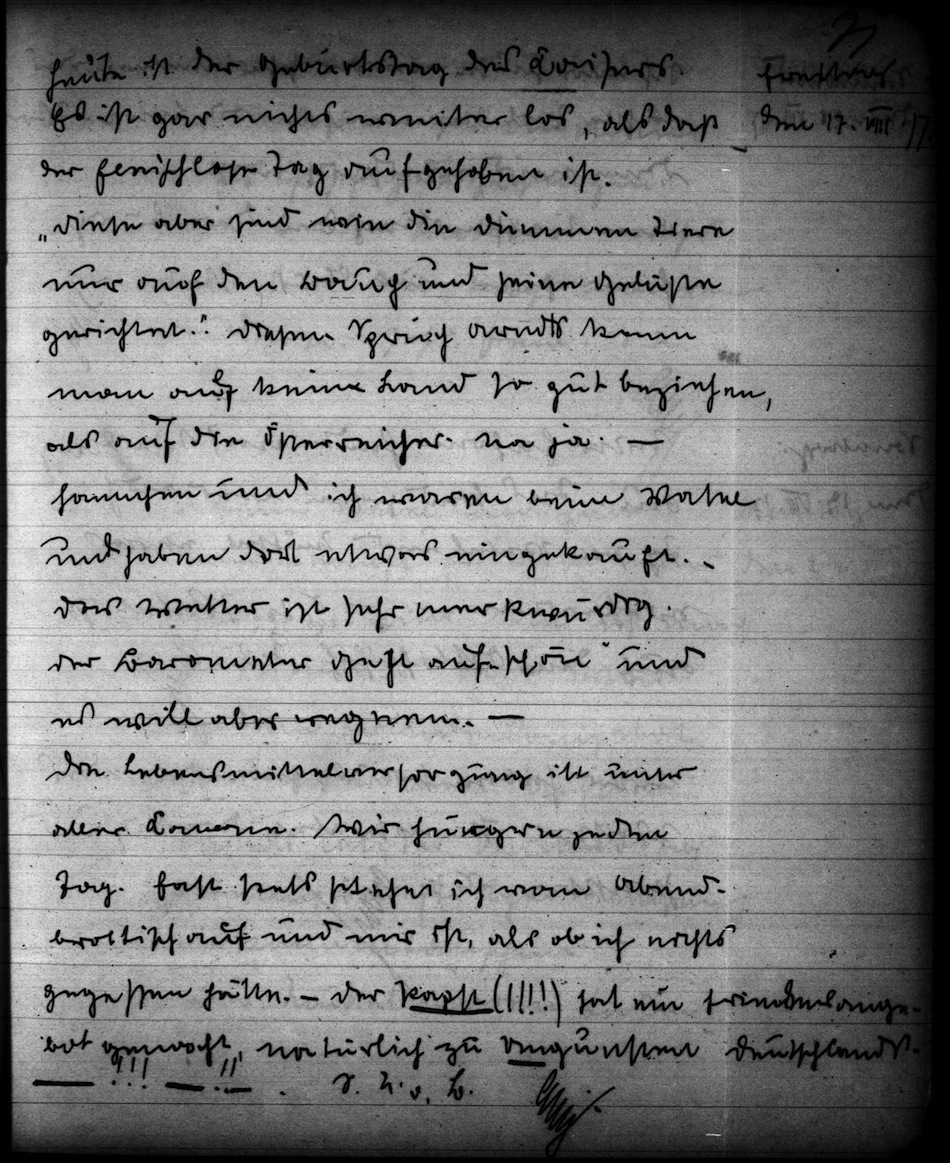 heute ist der Geburtstag des Kaisers. Freitag
Es ist gar nichts weiter los, als daß den 17. VIII. 17.
der fleischlose Tag aufgehoben ist.
„diese aber sind wie die dummen Tiere
nur auf den Bauch und seine Gelüste
gerichtet." diesen Spruch Arndts kann
man auf keine Land so gut beziehen,
als auf die Österreicher. na ja. —
Hannchen und ich waren beim
und haben dort etwas eingekauft.
das Wetter ist sehr merkwürdig.
der Barometer geht auf „schön" und
es will aber regnen. —
die Lebensmittelversorgung ist unter
aller Kanone. Wir hungern jeden
Tag. Fast stets stehe ich vom Abend-
brottisch auf und mir ist, als ob ich nichts
gegessen hätte. — der Papst (!!!!) hat ein Friedensange-
bot gemacht, natürlich zu Ungunsten Deutschlands.
— !!! — !! — .